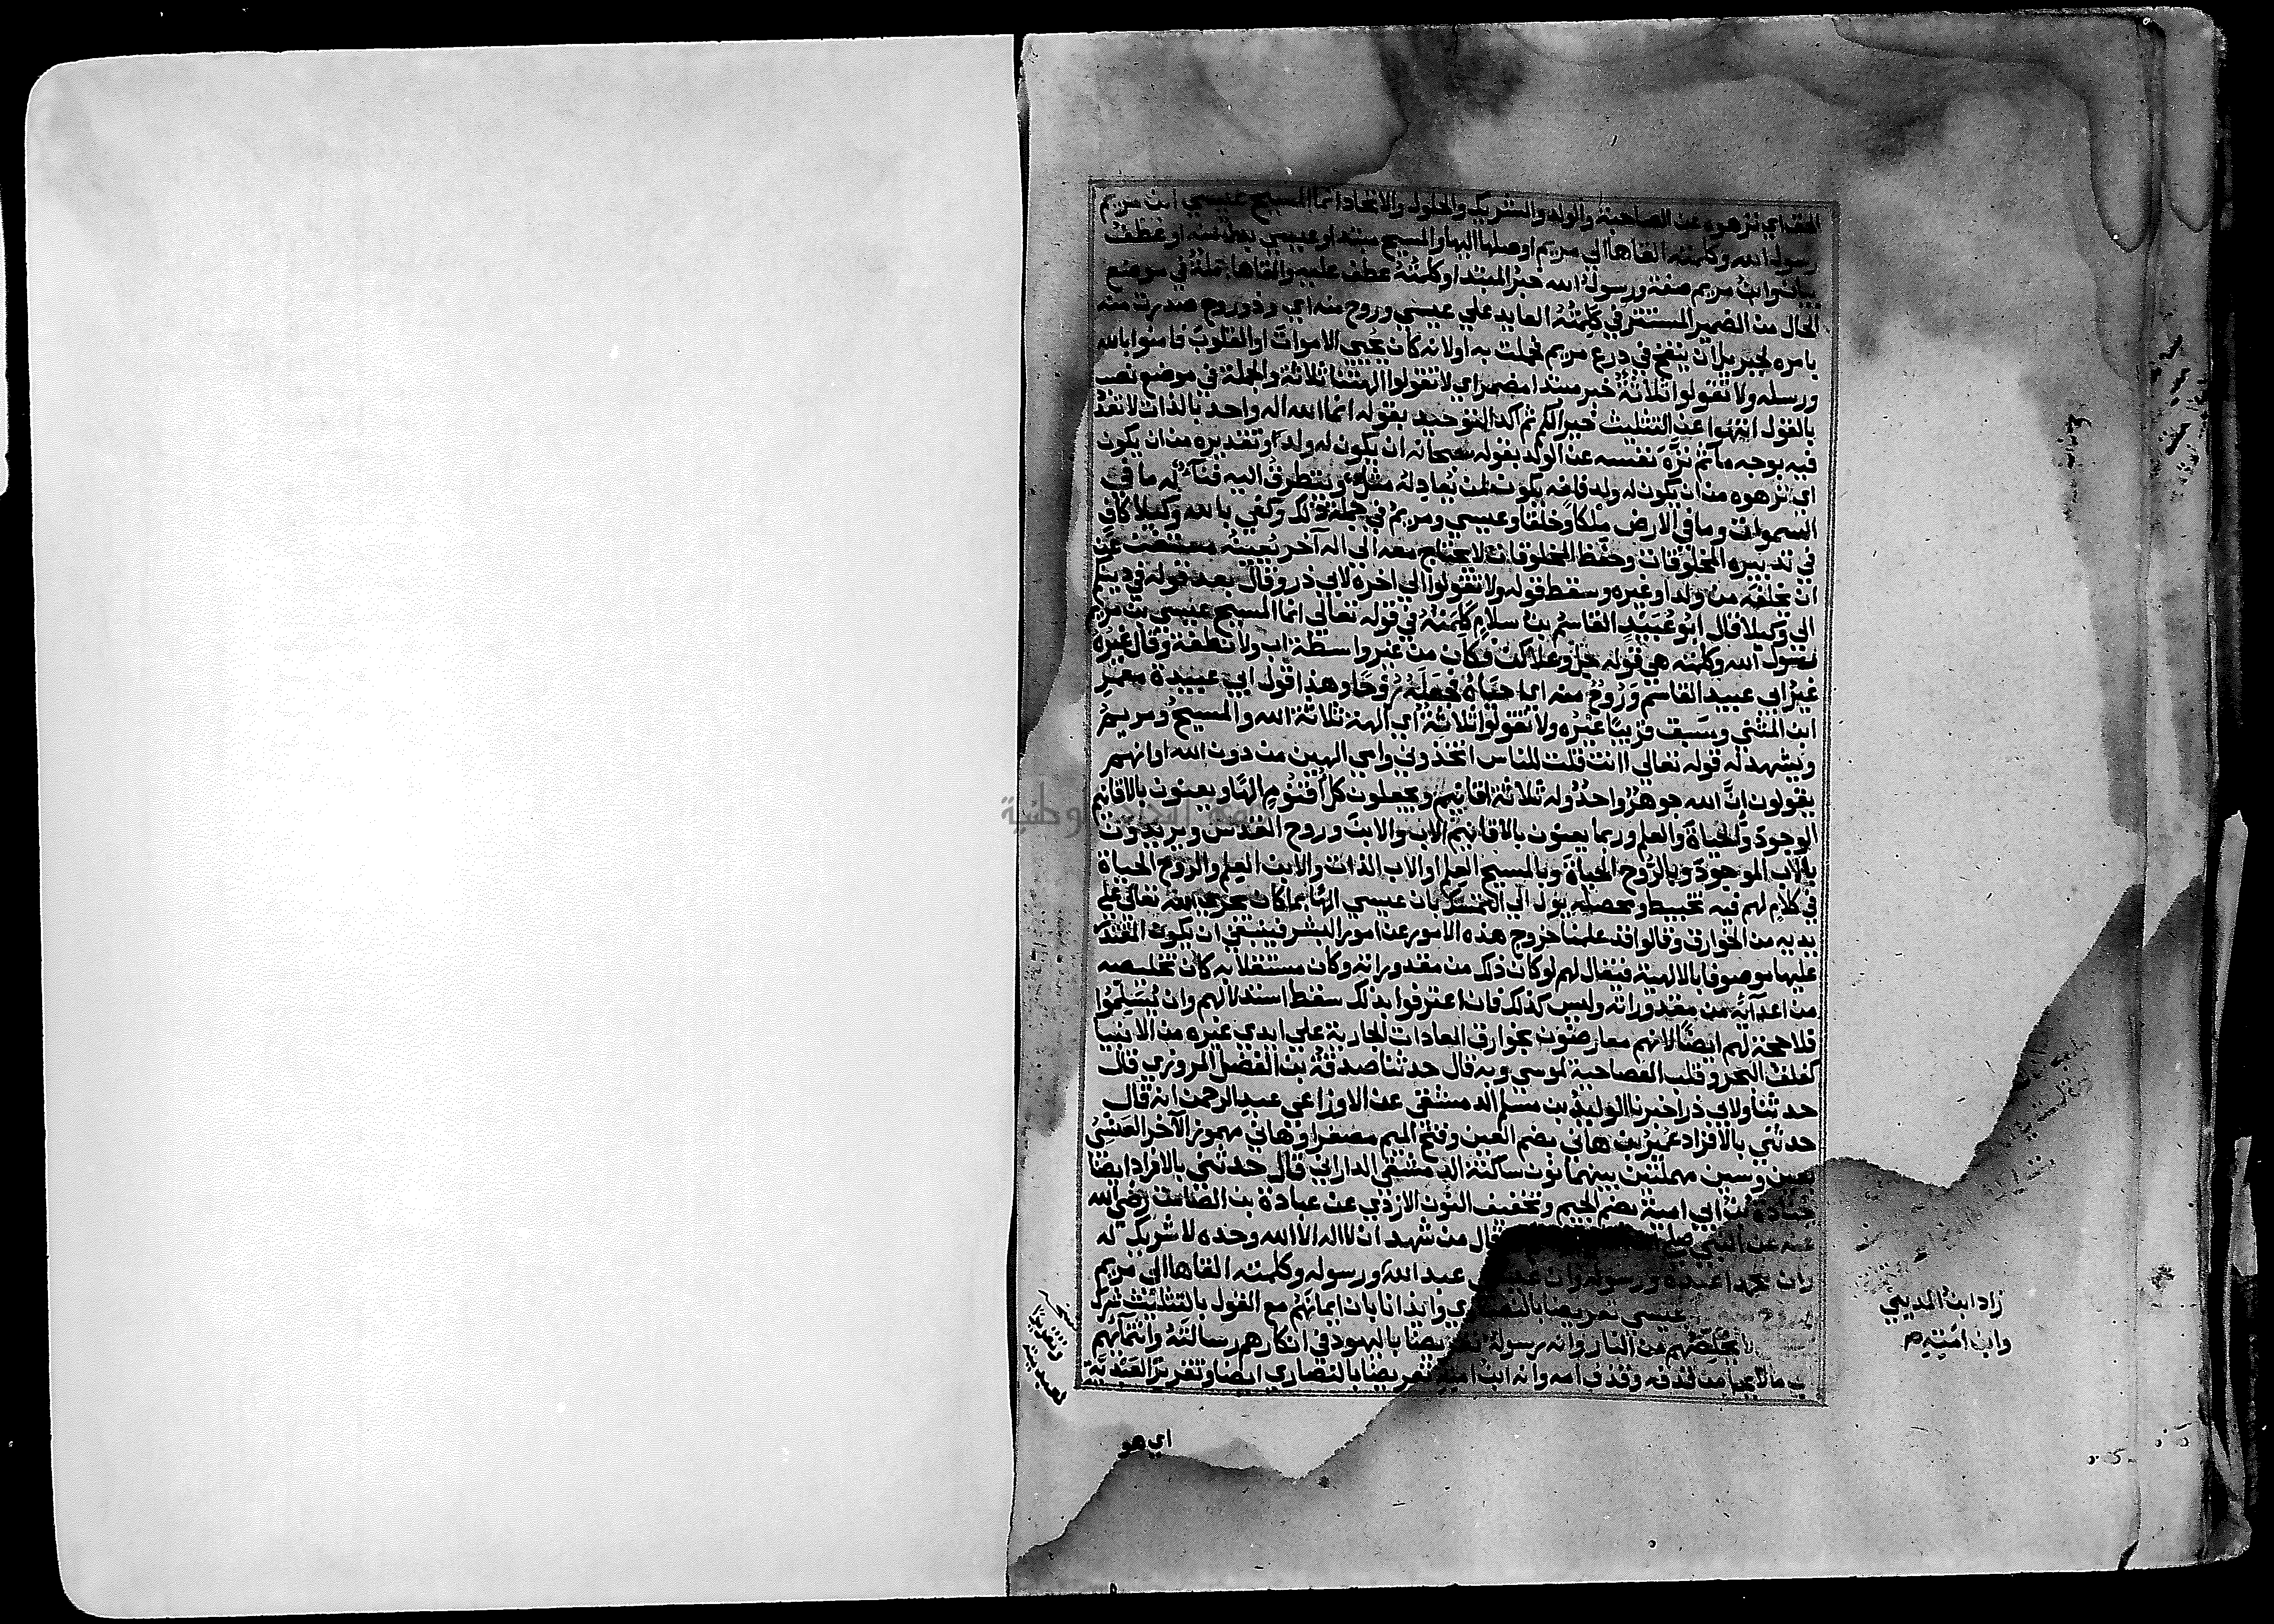 الحق اي نزهوه عن الصاحبة والولد والشريك والحلول والاتحاد انما المسيح عيسي ابن مريم
رسول الله وكلمته القاها الي مريم اوصلها اليها والمسيح مبتدا وعيسي بدل منه او عطف
بيان وابن مريم صفة ورسولُ الله خبرُ المبتدا وكلمتُهُ عطف عليه والقاها جملةٌ في موضع
الحال من الضمير المستتر في كلمتُهُ العايد علي عيسي وروح منه اي وذو روح صدرت منه
بامره لجبريل ان ينفخ في درع مريم فحملت به او لانه كان يحيي الامواتَ او القلوبَ فامنوا بالله
ورسله ولا تقولوا ثلاثةٌ خبر مبتدا مضمر اي لا تقولوا الهتنا ثلاثة والجملة في موضع نصب
بالقول انتهوا عن التثليث خيرا لكم ثم اكد التوحيد بقوله انما الله اله واحد بالذات لا تعدُّ
فيه بوجه ما ثم نزَّه نفسه عن الولد بقوله سبحانه ان يكون له ولد او تقديره من ان يكون
اي نزهوه من ان يكون له ولد فانه يكون لمن يُعادِلُهُ مثلٌ ويتطرق اليه فناءٌ له ما في
السموات وما في الارض مِلْكا وخلقا وعيسي ومريمُ في جملة ذلك وكفي بالله وكيلا كافٍ
في تدبيره المخلوقات وحفظ المخلوقات لا يحتاج معه الي اله آخر يُعينُهُ مستغنٍ عن
ان يخلفه من ولد او غيره وسقط قوله ولا تقولوا الي اخره لابي ذر وقال بعد قوله في دينكم
الي وكيلا قال ابو عُبَيْدٍ القاسمُ بنُ سلام كلِمَتُهُ في قوله تعالي انما المسيح عيسي بن مريم
رسولُ الله وكلمته هي قوله جلَّ وعلا كن فكان من غير واسطة اب ولا نطفة وقال غيرُه
غيرُ ابي عبيد القاسم وَرُوحٌ منه اي احياهُ فجعَلَهُ رُوحًا وهذا قول ابي عبيدة معمر
ابن المثني وسَبَقَ قريبًا غيرُه ولا تقولوا ثلاثةٌ اي الهة ثلاثة الله والمسيحُ ومريمُ
ويشهد له قوله تعالي اانت قلت للناس اتخذوني وامي الهين من دون الله او انهم
يقولون انَّ الله جوهرٌ واحدٌ وله ثلاثة اقانيم ويجعلون كلَّ اقنُومٍ الهًا ويعنون بالاقانيم
الوجودَ والحياةَ والعلم وربما يعنون بالاقانيم الابَ والابنَ وروح القدس ويريدون
بالابِ الموجودَ وبالرُّوح الحياةَ وبالمسيح العِلمَ او الاب الذات والابن العِلم والرُّوح الحياة
في كلامٍ لهم فيه تخبيط ومحصله يوول الي التمسك بان عيسي الهٌ بما كان يجري الله تعالي علي
يديه من الخوارق وقالوا قد علمنا خروج هذه الامور عن امور البشر فينبغي ان يكون المقتدرُ
عليها موصوفا بالالهية فيقال لهم لو كان ذلك من مقدوراته وكان مستقلا به كان تخليصه
من اعدآئه من مقدوراته وليس كذلك فان اعترفوا بذلك سقط استدلالهم وان لم يُسَلِّمُوا
فلا حجة لهم ايضًا لانهم معارضُون بخوارق العادات الجارية علي ايدي غيره من الانبيا
كفلق البحر وقلب العصا حية لموسي وبه قال حدثنا صدقةُ بن الفضل المروزي قال
حدثنا ولابي ذر اخبرنا الوليدُ بن مسلم الدمشقي عن الاوزاعي عبد الرحمن انه قال
حدثني بالافراد عُمَيْرُ بن هاني بضم العين وفتح الميم مصغرا وهاني مهموز الآخر العَنْسِيُّ
بعين وسين مهملتين بينهما نون ساكنة الدمشقي الداراني قال حدثني بالافراد ايضا
جُنادةُ بن ابي امية بضم الجيم وتخفيف النون الازدي عن عبادة بن الصامت رضي الله
عنه عن النبي صلي قال من شهد ان لا اله الا الله وحده لا شريك له
وان محمدا عبده ورسوله وان عيسي عبد الله ورسوله وكلمته القاها الي مريم
عيسي تعريضا بالنصاري وايذانا بان ايمانَهُم مع القول بالتثليث شرك
لا يُخَلِّصُهُم من النار وانه رسولُهُ تعريضا باليهود في انكارهم رسالتَهُ وانتمآئهم
الي ما لا يحل من قذفه وقذف امه وانه ابن امته تعريضا بالنصاري ايضا وتقريرًا لعبديته
زاد ابنُ المديني
وابن امَتِهِ
اي هو